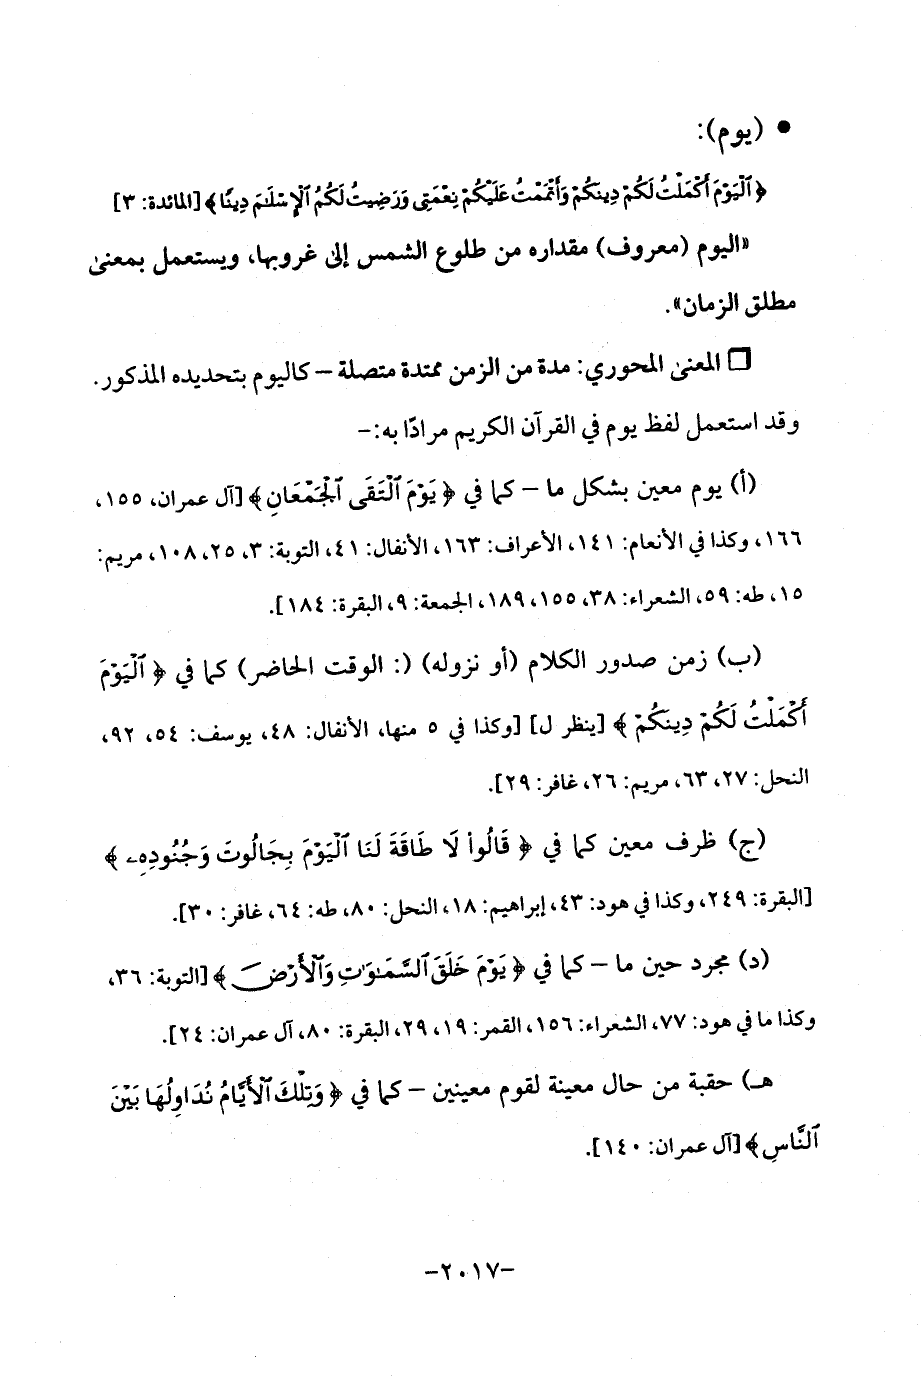 • (يوم):
﴿ ٱلْيَوْمَ أَكْمَلْتُ لَكُمْ دِينَكُمْ وَأَتْمَمْتُ عَلَيْكُمْ نِعْمَتِى وَرَضِيتُ لَكُمُ ٱلْإِسْلَٰمَ دِينًا ﴾ [المائدة: ٣]
«اليوم (معروف) مقداره من طلوع الشمس إلى غروبها، ويستعمل بمعنىٰ
مطلق الزمان».
❒ المعنىٰ المحوري: مدة من الزمن ممتدة متصلة – كاليوم بتحديده المذكور.
وقد استعمل لفظ يوم في القرآن الكريم مرادًا به:-
(أ) يوم معين بشكل ما – كما في ﴿ يَوْمَ ٱلْتَقَى ٱلْجَمْعَانِ ﴾ [آل عمران، ١٥٥،
١٦٦، وكذا في الأنعام: ١٤١، الأعراف: ١٦٣، الأنفال: ٤١، التوبة: ٣، ٢٥، ١٠٨، مريم:
١٥، طه: ٥٩، الشعراء: ٣٨، ١٥٥، ١٨٩، الجمعة: ٩، البقرة: ١٨٤].
(ب) زمن صدور الكلام (أو نزوله) (: الوقت الحاضر) كما في ﴿ ٱلْيَوْمَ
أَكْمَلْتُ لَكُمْ دِينَكُمْ ﴾ [ينظر ل] [وكذا في ٥ منها، الأنفال: ٤٨، يوسف: ٥٤، ٩٢،
النحل: ٢٧، ٦٣، مريم: ٢٦، غافر: ٢٩].
(ج) ظرف معين كما في ﴿ قَالُوا۟ لَا طَاقَةَ لَنَا ٱلْيَوْمَ بِجَالُوتَ وَجُنُودِهِۦ ﴾
[البقرة: ٢٤٩، وكذا في هود: ٤٣، إبراهيم: ١٨، النحل: ٨٠، طه: ٦٤، غافر: ٣٠].
(د) مجرد حين ما – كما في ﴿ يَوْمَ خَلَقَ ٱلسَّمَٰوَٰتِ وَٱلْأَرْضَ ﴾ [التوبة: ٣٦،
وكذا ما في هود: ٧٧، الشعراء: ١٥٦، القمر: ١٩، ٢٩، البقرة: ٨٠، آل عمران: ٢٤].
هـ) حقبة من حال معينة لقوم معينين – كما في ﴿ وَتِلْكَ ٱلْأَيَّامُ نُدَاوِلُهَا بَيْنَ
ٱلنَّاسِ ﴾ [آل عمران: ١٤٠].
-٢٠١٧-